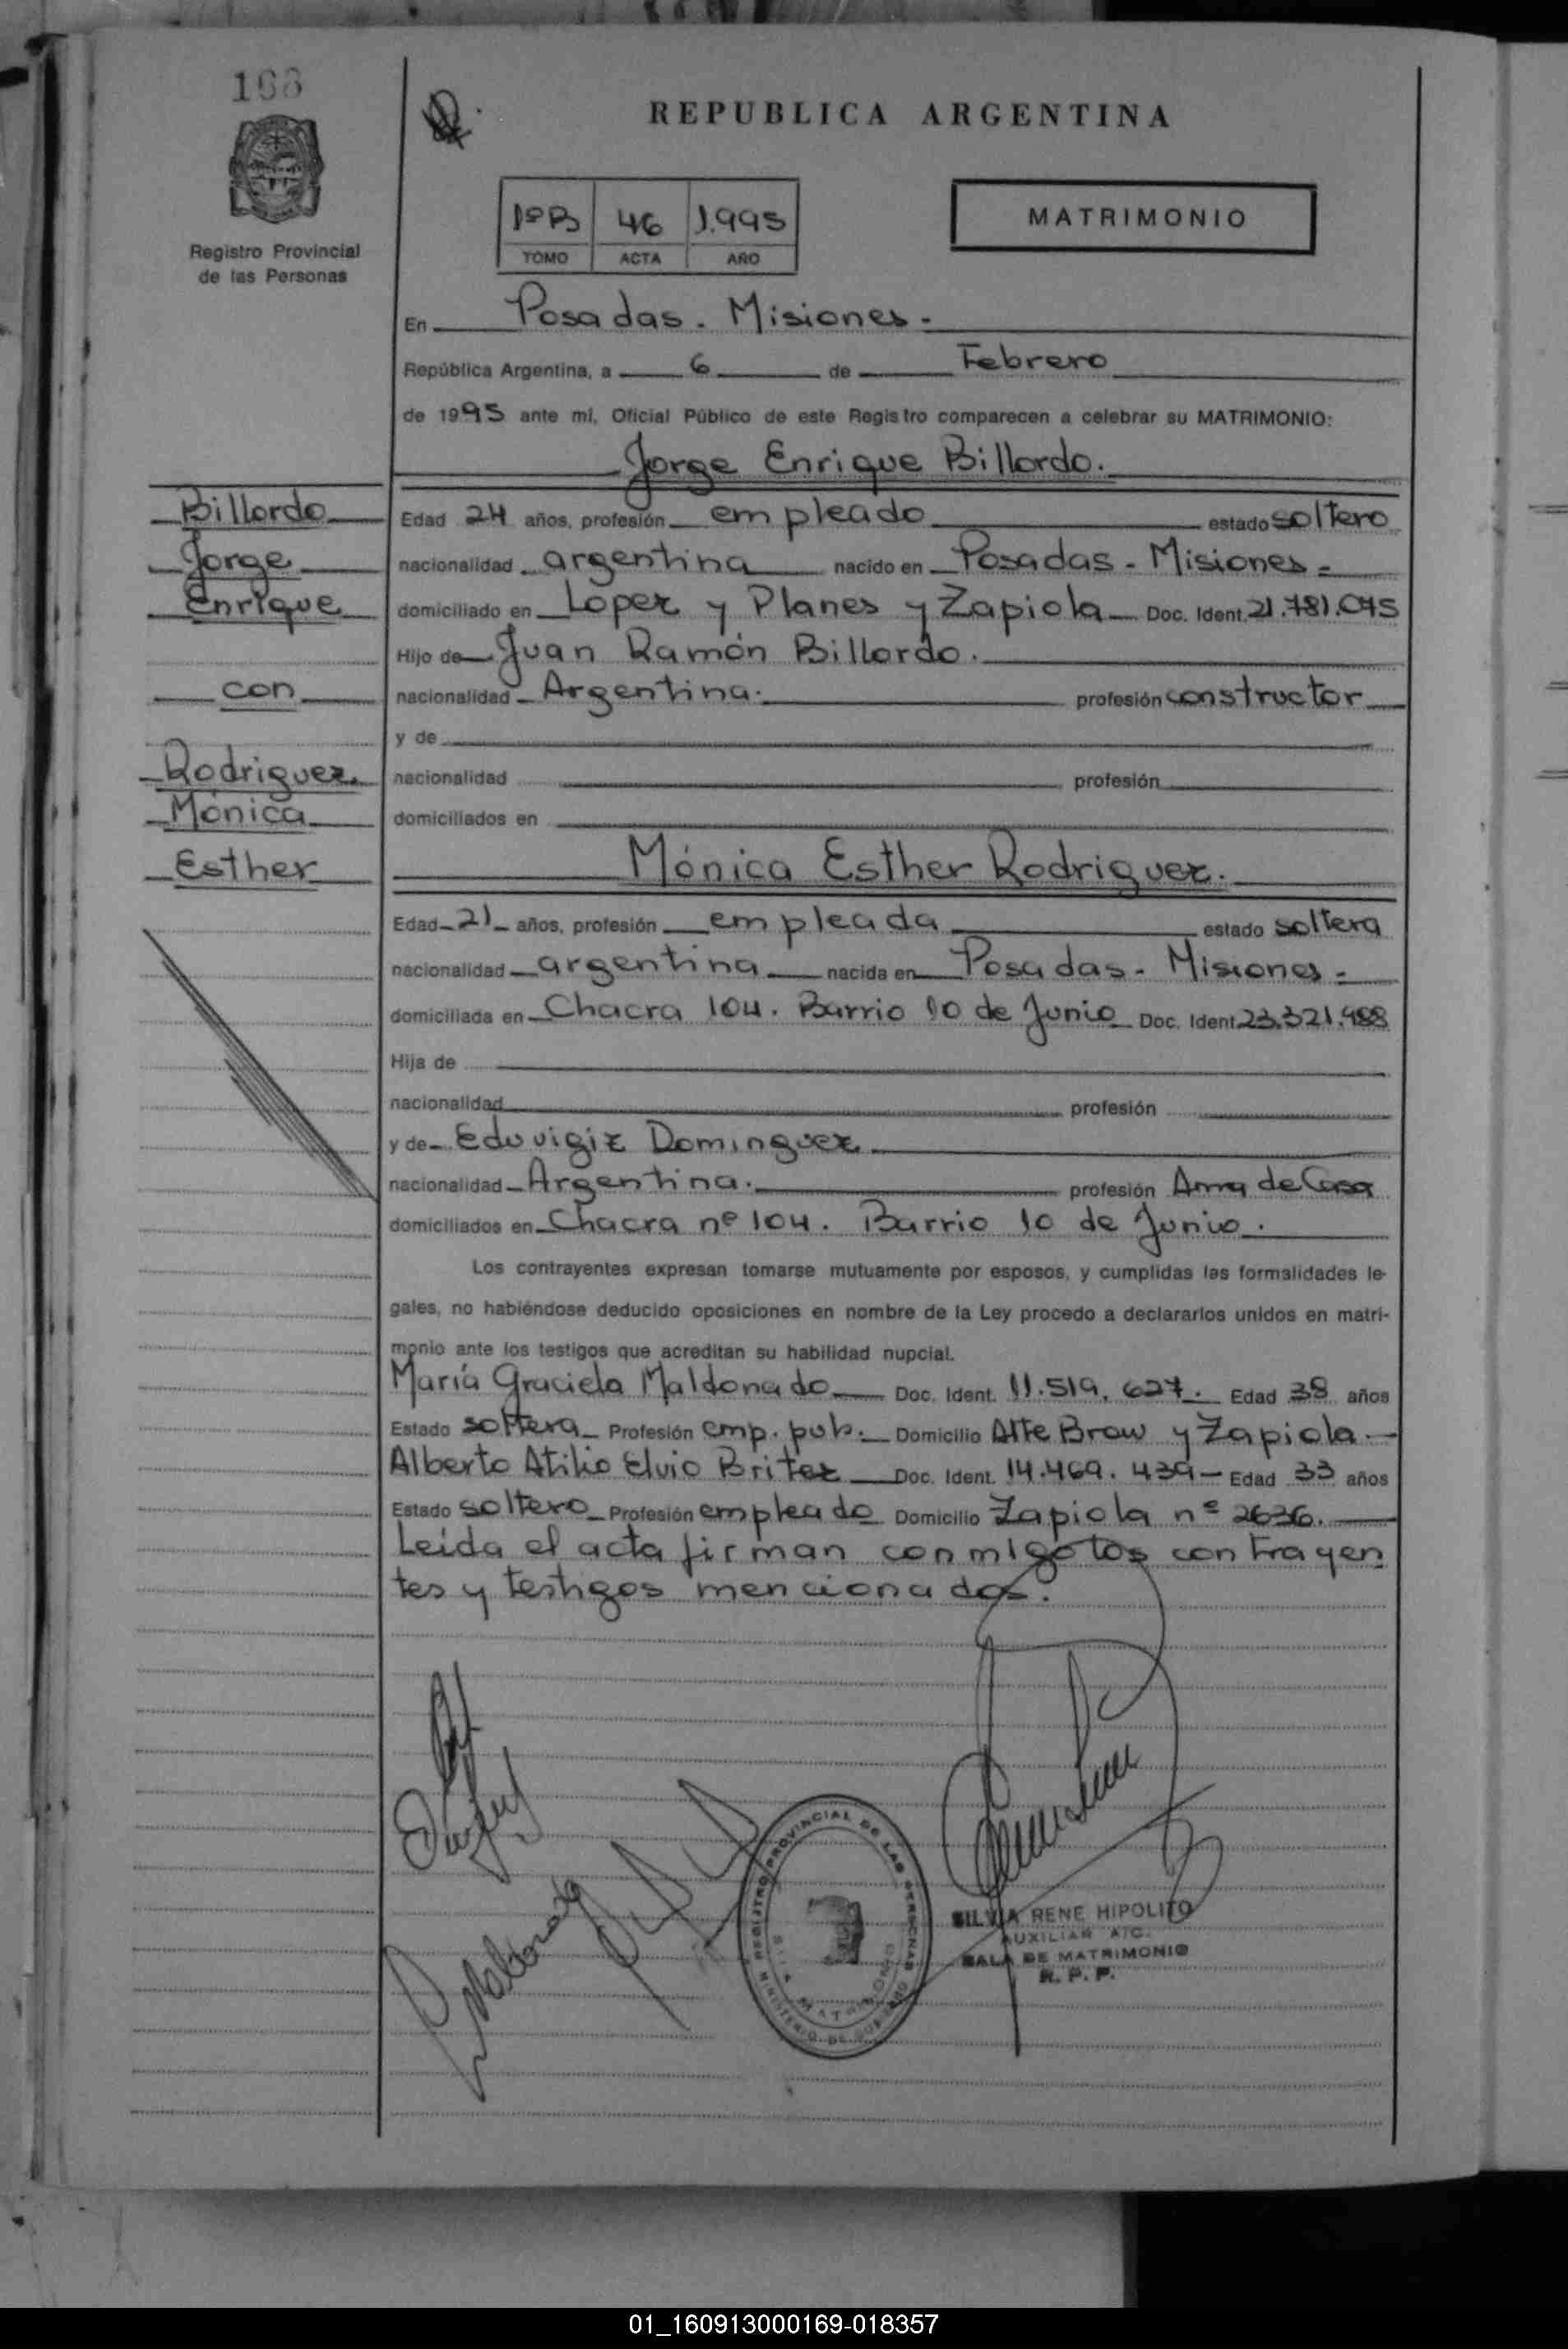 168
REPUBLICA ARGENTINA
Registro Provincial
de las Personas
1ºB 46 1.995
TOMO ACTA AÑO
MATRIMONIO
En Posadas. Misiones.
República Argentina, a 6 de Febrero
de 1995 ante mí, Oficial Público de este Registro comparecen a celebrar su MATRIMONIO:
Jorge Enrique Billordo.
Billordo
Jorge
Enrique
con
Rodriguez.
Mónica
Esther
Edad 24 años, profesión empleado estado soltero
nacionalidad argentina nacido en Posadas - Misiones -
domiciliado en Lopez y Planes y Zapiola Doc. Ident. 21.781.045
Hijo de Juan Ramón Billordo.
nacionalidad Argentina. profesión constructor
y de
nacionalidad profesión
domiciliados en
Mónica Esther Rodriguez.
Edad 21 años, profesión empleada estado soltera
nacionalidad argentina nacida en Posadas - Misiones -
domiciliada en Chacra 104. Barrio 10 de Junio Doc. Ident. 23.321.488
Hija de
nacionalidad profesión
y de Eduvigiz Dominguez
nacionalidad Argentina. profesión Ama de Casa
domiciliados en Chacra nº 104. Barrio 10 de Junio.
Los contrayentes expresan tomarse mutuamente por esposos, y cumplidas las formalidades le-
gales, no habiéndose deducido oposiciones en nombre de la Ley procedo a declararlos unidos en matri-
monio ante los testigos que acreditan su habilidad nupcial.
María Graciela Maldonado Doc. Ident. 11.519.627. Edad 38 años
Estado soltera Profesión emp. pub. Domicilio Alte Brow y Zapiola
Alberto Atilio Elvio Britez Doc. Ident. 14.469.439 Edad 33 años
Estado soltero Profesión empleado Domicilio Zapiola nº 2636.
Leida el acta firman conmigo los contrayen
tes y testigos mencionados.
REGISTRO PROVINCIAL DE LAS PERSONAS
SILVIA RENE HIPOLITO
AUXILIAR A/C.
SALA DE MATRIMONIO
R. P. P.
01_160913000169-018357